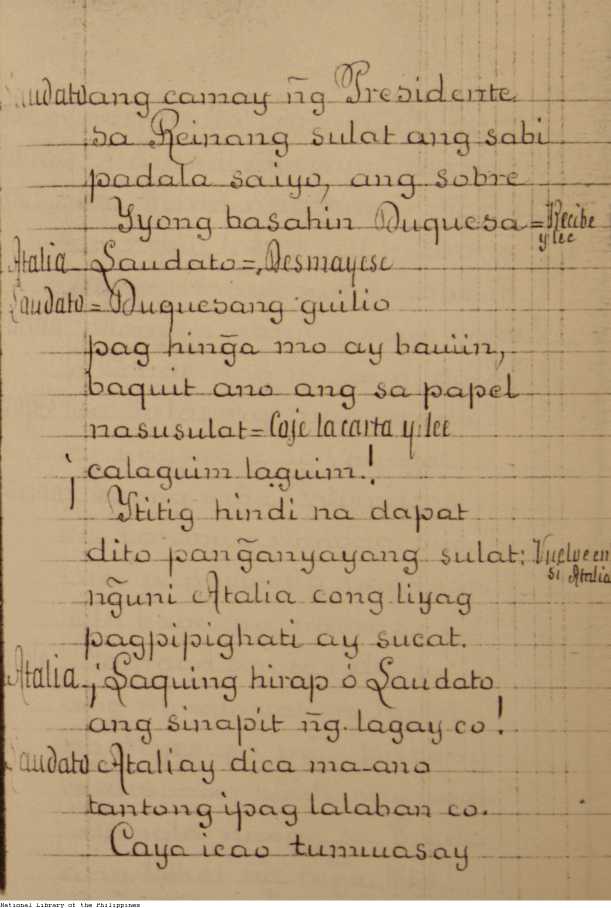 Laudato ang camay ñg Presidente
sa Reinang sulat ang sabi
padala saiyo, ang sobre
Yyong basahin Duquesa = Recibe
y lee
Atalia Laudato =, Desmayese
Laudato = Duquesang guilio
pag hing̃a mo ay bauiin,
baquit ano ang sa papel
nasusulat = Coje la carta y lee
¡calaguim laguim!
Ytitig hindi na dapat
dito pang̃anyayang sulat: Vuelve en
si Atalia
ng̃uni Atalia cong liyag
pagpipighati ay sucat.
Atalia ¡Laquing hirap ó Laudato
ang sinapit ñg lagay co!
Laudato Ataliay dica ma-ano
tantong ipag lalaban co.
Caya icao tumiuasay
National Library of the Philippines